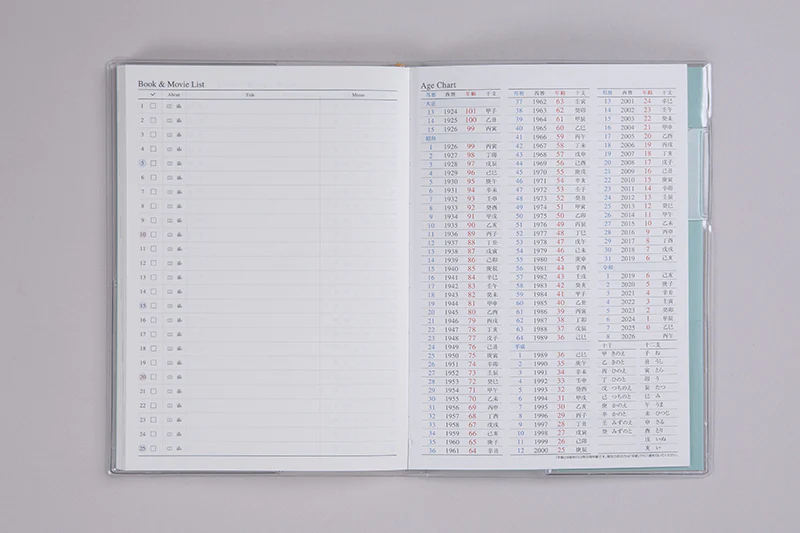 Book & Movie List
✓ About Title Memo
1
2
3
4
5
6
7
8
9
10
11
12
13
14
15
16
17
18
19
20
21
22
23
24
25
Age Chart
年号 西暦 年齢 干支
大正
13 1924 101 甲子
14 1925 100 乙丑
15 1926 99 丙寅
昭和
1 1926 99 丙寅
2 1927 98 丁卯
3 1928 97 戊辰
4 1929 96 己巳
5 1930 95 庚午
6 1931 94 辛未
7 1932 93 壬申
8 1933 92 癸酉
9 1934 91 甲戌
10 1935 90 乙亥
11 1936 89 丙子
12 1937 88 丁丑
13 1938 87 戊寅
14 1939 86 己卯
15 1940 85 庚辰
16 1941 84 辛巳
17 1942 83 壬午
18 1943 82 癸未
19 1944 81 甲申
20 1945 80 乙酉
21 1946 79 丙戌
22 1947 78 丁亥
23 1948 77 戊子
24 1949 76 己丑
25 1950 75 庚寅
26 1951 74 辛卯
27 1952 73 壬辰
28 1953 72 癸巳
29 1954 71 甲午
30 1955 70 乙未
31 1956 69 丙申
32 1957 68 丁酉
33 1958 67 戊戌
34 1959 66 己亥
35 1960 65 庚子
36 1961 64 辛丑
年号 西暦 年齢 干支
37 1962 63 壬寅
38 1963 62 癸卯
39 1964 61 甲辰
40 1965 60 乙巳
41 1966 59 丙午
42 1967 58 丁未
43 1968 57 戊申
44 1969 56 己酉
45 1970 55 庚戌
46 1971 54 辛亥
47 1972 53 壬子
48 1973 52 癸丑
49 1974 51 甲寅
50 1975 50 乙卯
51 1976 49 丙辰
52 1977 48 丁巳
53 1978 47 戊午
54 1979 46 己未
55 1980 45 庚申
56 1981 44 辛酉
57 1982 43 壬戌
58 1983 42 癸亥
59 1984 41 甲子
60 1985 40 乙丑
61 1986 39 丙寅
62 1987 38 丁卯
63 1988 37 戊辰
64 1989 36 己巳
平成
1 1989 36 己巳
2 1990 35 庚午
3 1991 34 辛未
4 1992 33 壬申
5 1993 32 癸酉
6 1994 31 甲戌
7 1995 30 乙亥
8 1996 29 丙子
9 1997 28 丁丑
10 1998 27 戊寅
11 1999 26 己卯
12 2000 25 庚辰
年号 西暦 年齢 干支
13 2001 24 辛巳
14 2002 23 壬午
15 2003 22 癸未
16 2004 21 甲申
17 2005 20 乙酉
18 2006 19 丙戌
19 2007 18 丁亥
20 2008 17 戊子
21 2009 16 己丑
22 2010 15 庚寅
23 2011 14 辛卯
24 2012 13 壬辰
25 2013 12 癸巳
26 2014 11 甲午
27 2015 10 乙未
28 2016 9 丙申
29 2017 8 丁酉
30 2018 7 戊戌
31 2019 6 己亥
令和
1 2019 6 己亥
2 2020 5 庚子
3 2021 4 辛丑
4 2022 3 壬寅
5 2023 2 癸卯
6 2024 1 甲辰
7 2025 0 乙巳
8 2026 丙午
十干 十二支
甲 きのえ 子 ね
乙 きのと 丑 うし
丙 ひのえ 寅 とら
丁 ひのと 卯 う
戊 つちのえ 辰 たつ
己 つちのと 巳 み
庚 かのえ 午 うま
辛 かのと 未 ひつじ
壬 みずのえ 申 さる
癸 みずのと 酉 とり
戌 いぬ
亥 い